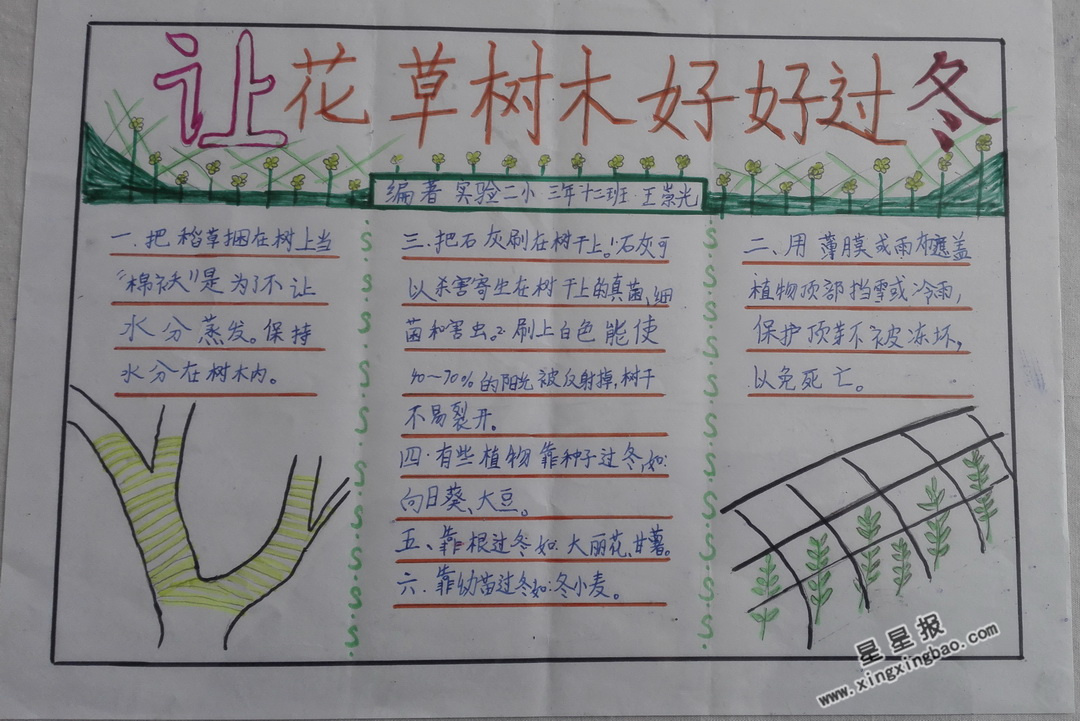 让花草树木好好过冬
编著 实验二小 三年十二班·王崇光
一.把稻草捆在树上当
"棉袄"是为了不让
水分蒸发。保持
水分在树木内。
三.把石灰刷在树干上。1.石灰可
以杀害寄生在树干上的真菌、细
菌和害虫。2.刷上白色能使
40～70%的阳光被反射掉,树干
不易裂开。
四·有些植物靠种子过冬,如:
向日葵、大豆。
五、靠根过冬如:大丽花、甘薯。
六.靠幼苗过冬如:冬小麦。
二、用薄膜或雨布遮盖
植物顶部挡雪或冷雨,
保护顶芽不被冻坏,
以免死亡。
星星报
www.xingxingbao.com